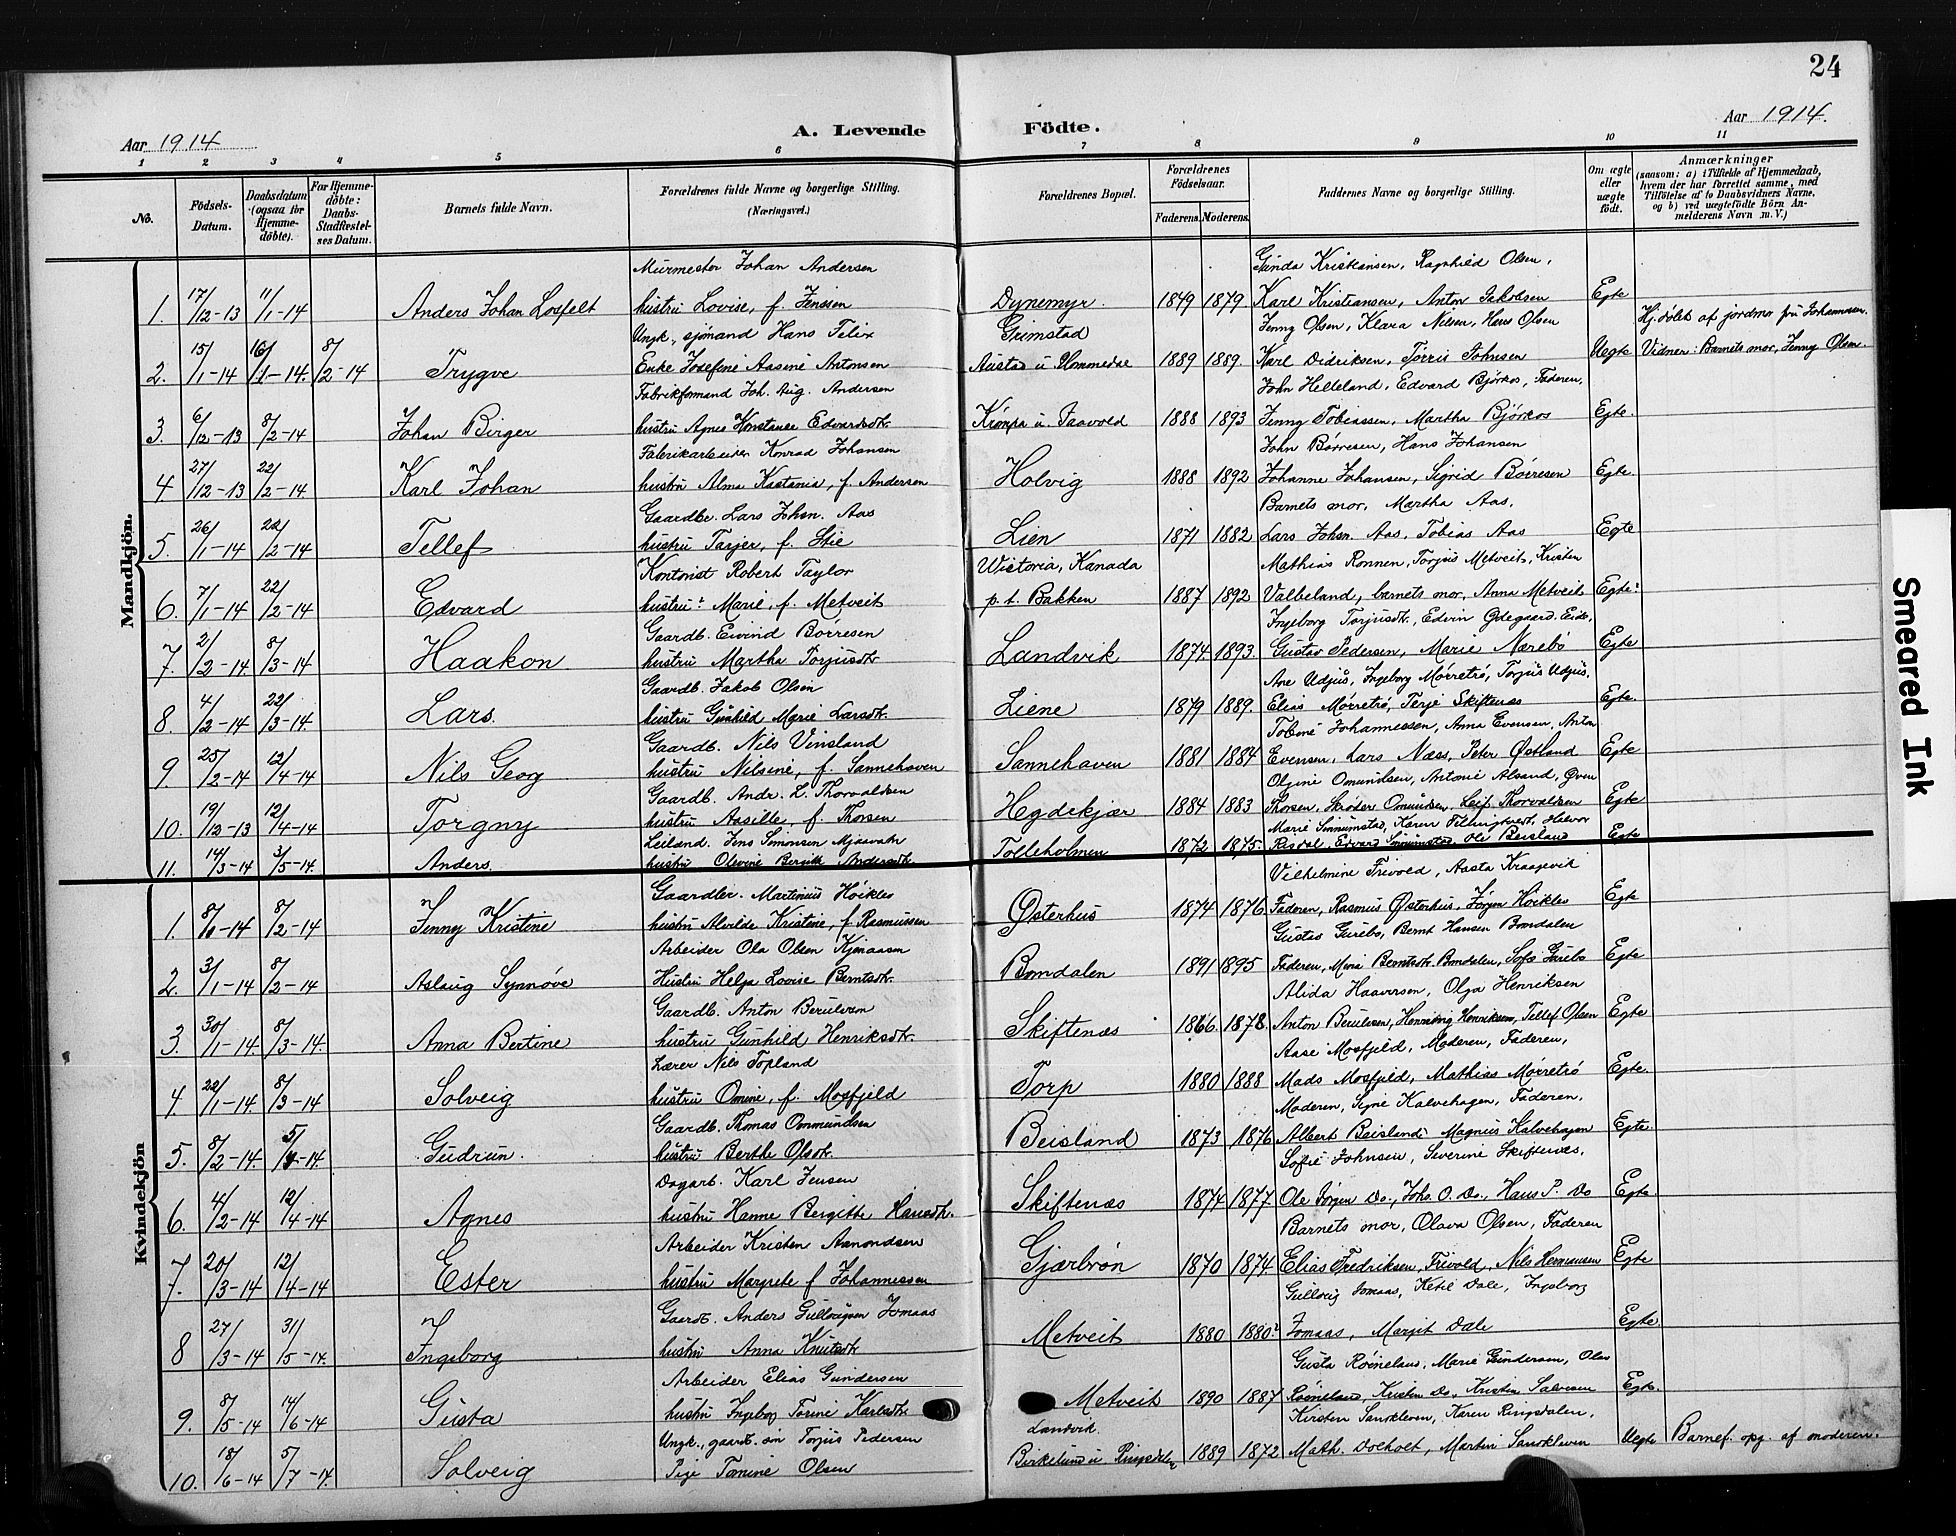 24
Aar 1914
A. Levende Födte.
Aar 1914.
1 2 3 4 5 6 7 8 9 10 11
No.
Födsels-Datum.
Daabsdatum (ogsaa for Hjemmedöbte).
For Hjemmedöbte: Daabs-Stadfæstelses Datum.
Barnets fulde Navn.
Forældrenes fulde Navne og borgerlige Stilling. (Næringsvei.)
Forældrenes Bopæl.
Forældrenes Födselsaar.
Faderens. Moderens.
Faddernes Navne og borgerlige Stilling.
Om ægte eller uægte födt.
Anmærkninger
(saasom: a) i Tilfælde af Hjemmedaab, hvem der har forrettet samme, med Tilföielse af to Daabsvidners Navne, og b) ved uægtefödte Börn Anmelderens Navn m. V.)
Mandkjön.
Murmester Johan Andersen Gunda Kristiansen, Ragnhild Olsen,
1. 17/12-13 11/1-14 Anders Johan Losfelt hustru Lovise, f. Jenssen Dynemyr. 1849 1879 Karl Kristiansen, Anton Jakobsen Egte
Ungk., sjömand Hans Felix Grimstad Jenny Olsen, Klara Nilsen, Hans Olsen Hj.døbt af jordmor fru Johannesen.
2. 15/1-14 16/1-14. 8/2-14 Trygve Enke Josefine Aasine Antonsen Austad u Hommedal 1889 1889. Karl Didriksen, Torris Johnsen Uegte Vidner: Barnets mor, Jenny Olsen.
Fabrikformand Joh. Aug. Andersen John Helleland, Edvard Bjørkos, Faderen,
3. 6/12-13 8/2-14 Johan Birger hustru Agnes Konstance Edvardsdtr. 1888 1893 Jenny Tobiassen, Martha Bjørkos Egte.
Fabrikarbeider Konrad Johansen John Børresen, Hans Johansen
4 27/12-13 22/2-14 Karl Johan hustru Alma Kastania, f. Andersen Holvig 1888 1892 Johanne Johansen, Sigrid Børresen Egte
Gaardbr. Lars Johsn. Aas Barnets mor, Martha Aas,
5. 26/1-14 22/2-14 Tellef hustru Tarjer, f. Stie Lien 1871 1882 Lars Johsn. Aas, Tobias Aas Egte
Kontorist Robert Taylor Wictoria, Kanada Mathias Ronnen, Torjus Metveit, Kristen
6. 7/1-14 22/2-14 Edvard hustru: Marie, f. Metveit p.t. Bakken 1887 1892 Valbeland, barnets mor, Anna Metveit Egte:
Gaardb. Eivind Børresen Ingeborg Torjusdtr., Edvin Ødegaard. Eide,
7. 2/2-14 8/3-14 Haakon hustru Martha Torjusdtr Landvik 1874 1893. Gustav Pedersen, Marie Nærebø Egte
Gaardb. Jakob Olsen Ane Udjus, Ingeborg Mørretrø, Torjus Udjus,
8 4/2-14 22/3-14. Lars. hustru Gunhild Marie Larsdtr. Liene 1879 1889. Elias Mørretrø, Terje Skiftenes Egte.
Gaardb. Nils Vinsland Tobine Johannessen, Anna Evensen, Anton
9 25/2-14 12/4-14 Nils Georg hustru Nilsine, f. Sannehaven Sannehaven 1881 1884 Evensen, Lars Næss, Peter Østland Egte
Gaardb. Andr. L. Thorvaldsen Olgine Omundsen, Antonie Alsand,
10. 19/12-13 12/4-14 Torgny hustru Aasille, f. Thorsen Hegdekjær 1884 1883 Thorsen, Omundsen, Leif Thorvaldsen Egte
Leiland. Jens Simonsen Mjaavatn
11. 14/3-14 3/5-14. Anders. hustru Olevine Bergitte Andersdtr Tolleholmen 1872 1875. Risdal, Edvard Sinnumstad, Ole Beisland Egte
Kvindekjön
Gaardbr. Martinius Høikles Vilhelmine Frivold, Aasta Kraagevik
1. 8/1-14 8/2-14 Jenny Kristine hustru Alvilde Kristine, f. Rasmussen Østerhus 1874 1876. Faderen, Rasmus Østerhus, Jørgen Høikles Egte
Arbeider Ola Olsen Kjenaasen Gustav Gurebo, Bernt Hansen Bomdalen
2. 3/1-14 8/2-14 Aslaug Synnøve Hustru Helga Lovise Berntsdtr. Bomdalen 1891 1895 Faderen, Maria Berntsdtr. Bomdalen, Sofie Gurebo Egte
Gaardb. Anton Berulsen Alida Haaversen, Olga Henriksen
3. 30/1-14 8/3-14. Anna Bertine hustru Gunhild Henriksdtr. Skiftenæs 1866. 1878. Anton Berulsen, Henning Henriksen, Tellef Olsen Egte
Lærer Nils Topland Aase Mosfjeld, Moderen, Faderen,
4. 22/1-14 8/3-14 Solveig hustru Omine, f. Mosfjeld Torp 1880 1888 Mads Mosfjeld, Mathias Mørretrø Egte.
Gaardb. Thomas Ommundsen Moderen, Signe Kalvehagen, Faderen,
5. 8/2-14. 5/4-14. Gudrun. hustru Berthe Olsdtr. Beisland 1873 1876 Albert Beisland, Magnus Kalvehagen Egte.
Dagarb. Karl Jensen Sofie Johnsen, Severine Skiftenæs,
6. 4/2-14 12/4-14 Agnes hustru Hanne Bergitte Hansdtr. Skiftenæs 1874 1877 Ole Jørgen Do., Johs. O. Do., Hans P. Do Egte.
Arbeider Kristen Aamondsen Barnets mor, Olava Olsen, Faderen
7. 20/3-14 12/4-14 Ester hustru Margrete f Johannessen Gjærbrøn 1870 1874. Elias Fredriksen, Frivold, Nils Hermansen Egte
Gaardb. Anders Gullougsen Jomaas Gulloug Jomaas, Ketil Dale, Ingeborg
8 27/3-14 31/5-14. Ingeborg hustru Anna Knutsdtr Metveit 1880 1880? Jomaas, Margit Dale Egte
Arbeider Elias Gundersen Gusta Rønneland, Marie Gundersen, Olav
9. 8/5-14 14/6-14 Gusta hustru Ingebor Torine Karlsdtr. Metveit 1890 1887 Rønneland, Kristen Do, Kristen Salvesen Egte.
Ungk., gaardb. søn Torjus Pedersen Landvik. Kirsten Sandkleven, Karen Ringdalen,
10. 18/6-14 5/7-14. Solveig Pige Tomine Olsen Birkelund u Ringdalen 1889 1872 Math. Docholt, Martin Sandkleven Uegte Barnef. opg. af moderen.
Smeared Ink